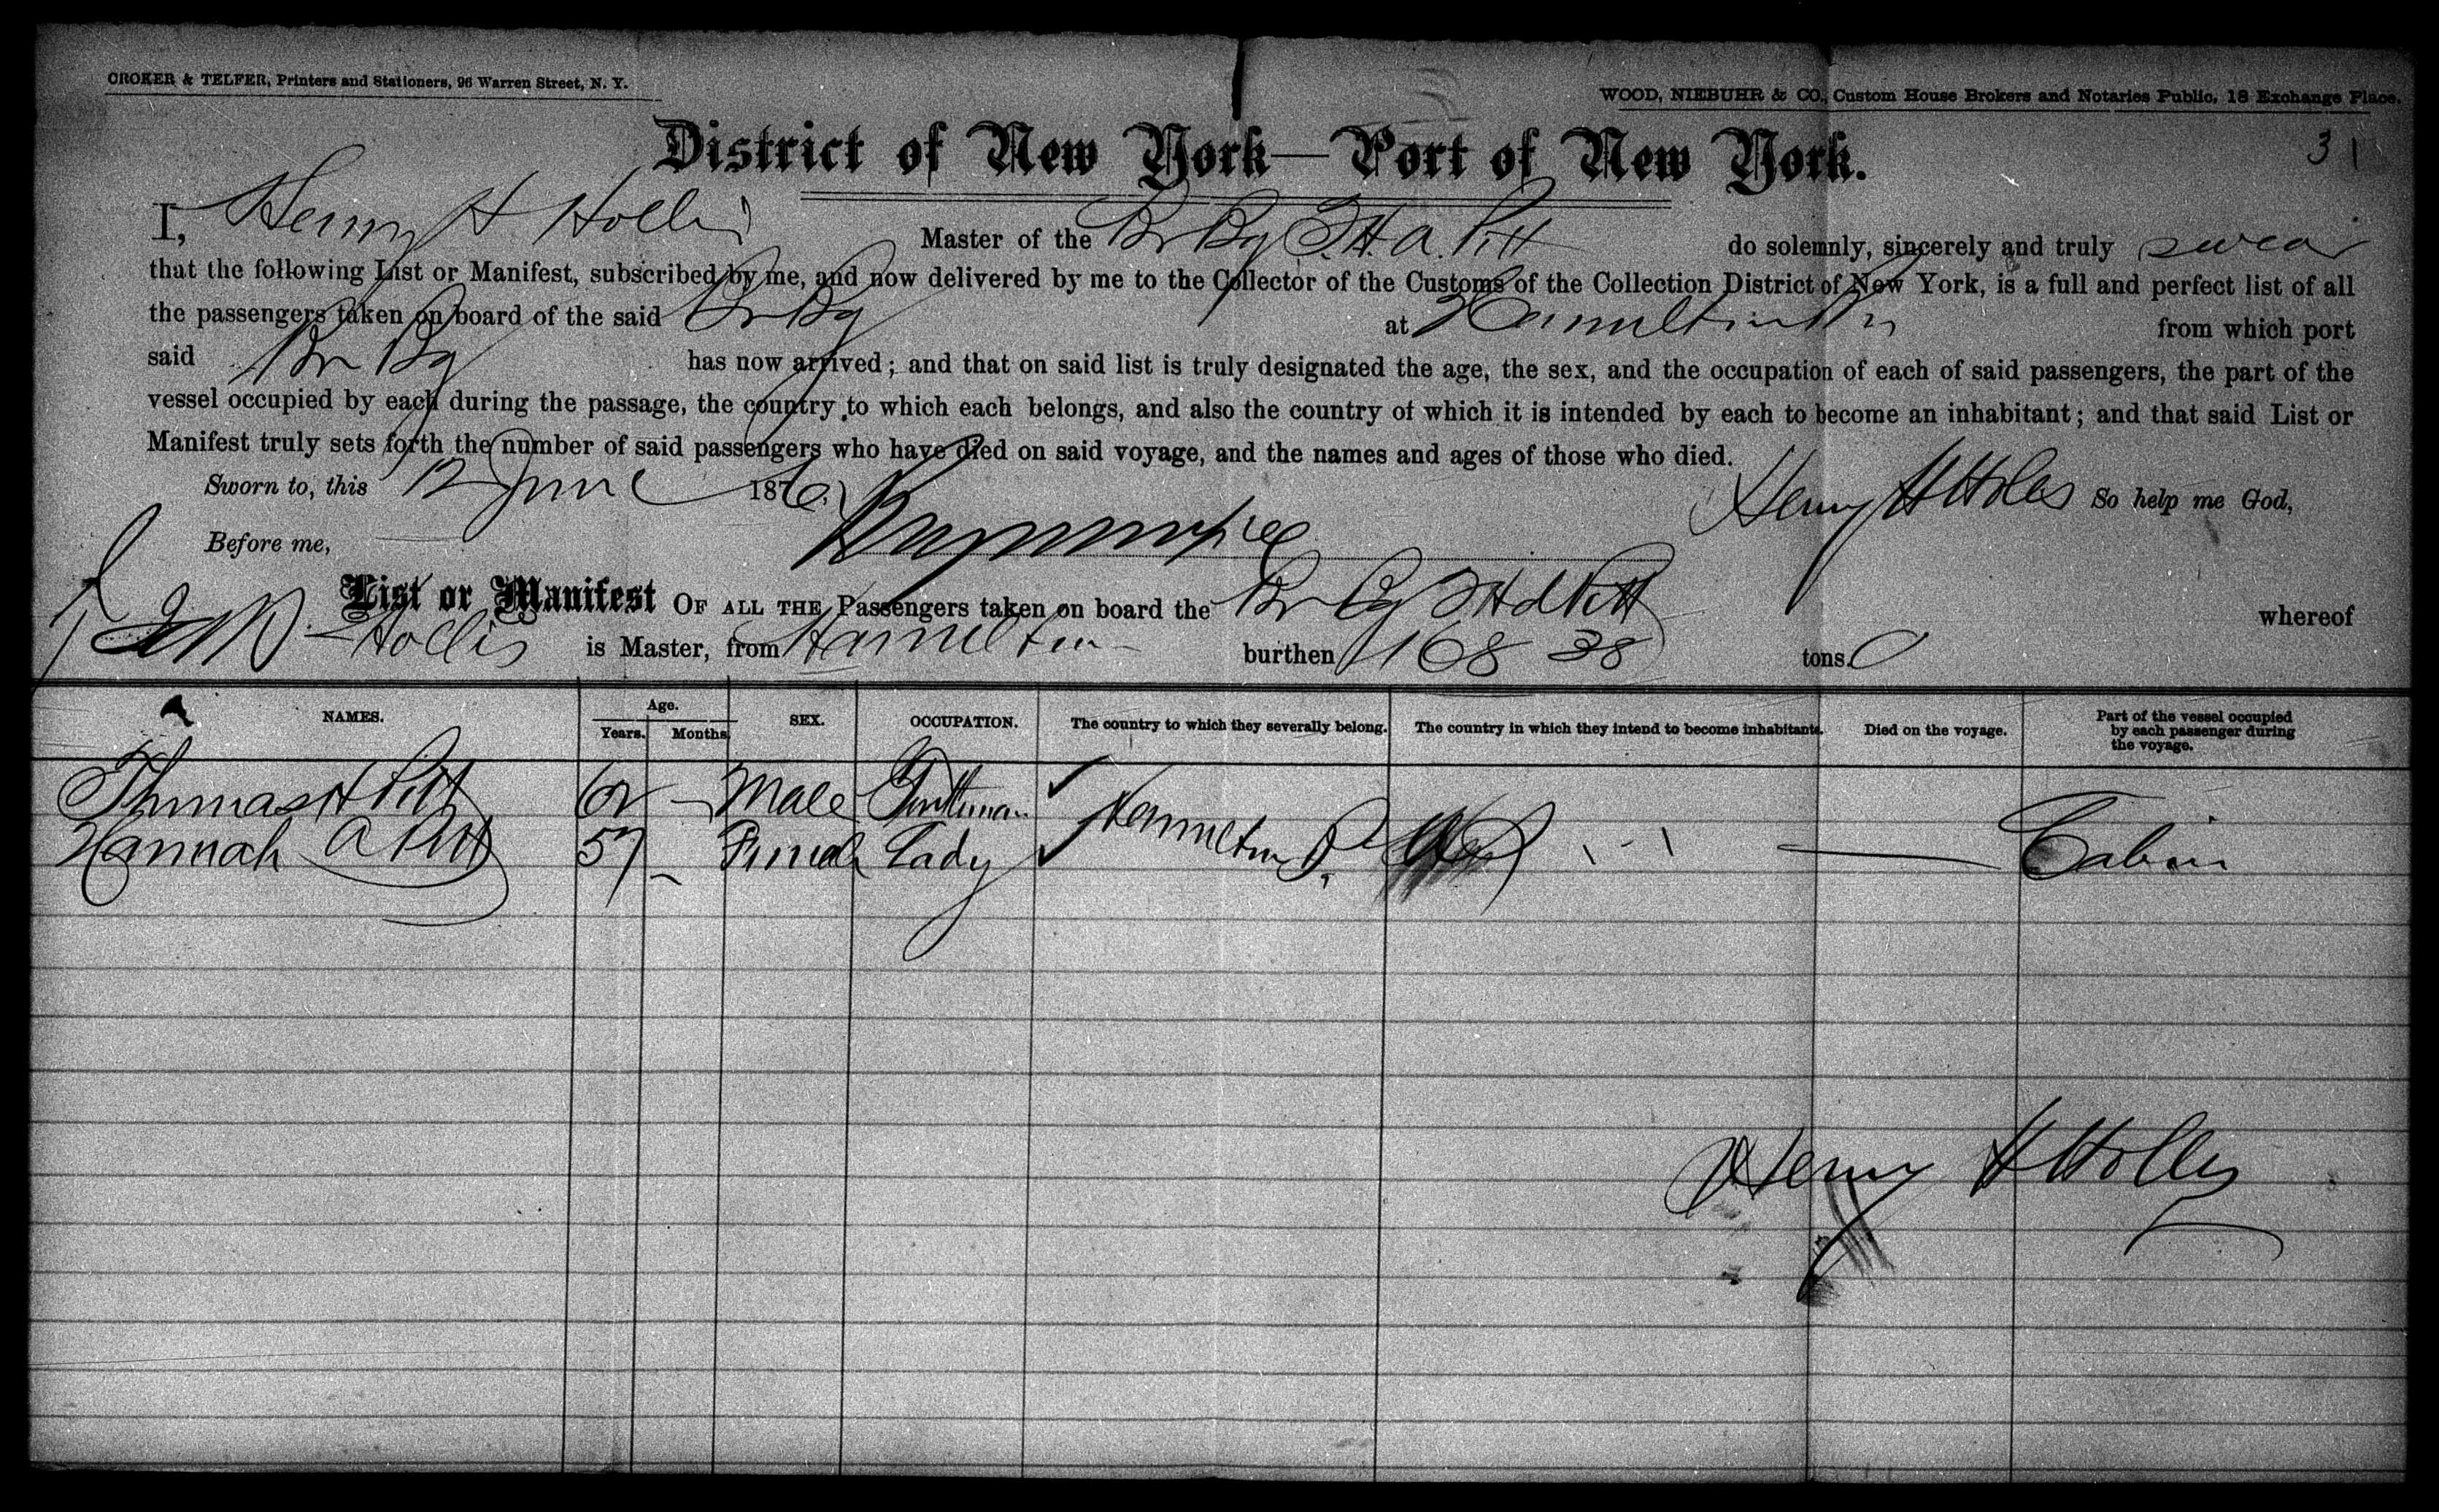 CROKER & TELFER, Printers and Stationers, 96 Warren Street, N. Y.
WOOD, NIEBUHR & CO., Custom House Brokers and Notaries Public, 18 Exchange Place.
31
District of New York—Port of New York.
I, Henry H Hollis Master of the Br Bg T. H. A. Pitt do solemnly, sincerely and truly swear
that the following List or Manifest, subscribed by me, and now delivered by me to the Collector of the Customs of the Collection District of New York, is a full and perfect list of all
the passengers taken on board of the said Br Bg at Hamilton from which port
said Br Bg has now arrived; and that on said list is truly designated the age, the sex, and the occupation of each of said passengers, the part of the
vessel occupied by each during the passage, the country to which each belongs, and also the country of which it is intended by each to become an inhabitant; and that said List or
Manifest truly sets forth the number of said passengers who have died on said voyage, and the names and ages of those who died.
Sworn to, this 12 June 1876 Henry H Hollis So help me God,
Before me,
List or Manifest OF ALL THE Passengers taken on board the Br Bg T H A Pitt whereof
Hollis is Master, from Hamilton burthen 168 38 tons.
NAMES. Age. Years. Months SEX. OCCUPATION. The country to which they severally belong. The country in which they intend to become inhabitants. Died on the voyage. Part of the vessel occupied by each passenger during the voyage.
Thomas H Pitt 62 – Male Gentleman
Hannah A Pitt 57 – Female Lady Hamilton — Cabin
Henry H Hollis